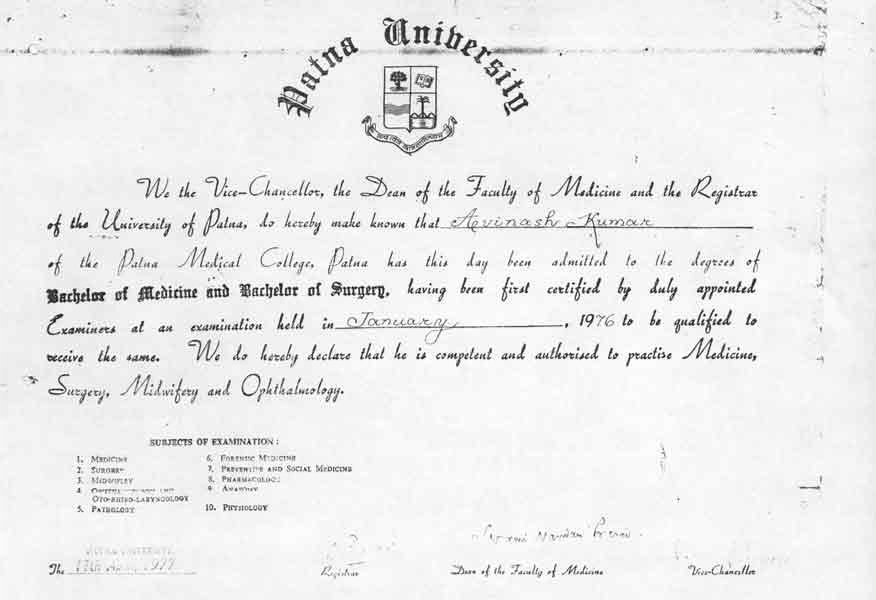 Patna University
We the Vice-Chancellor, the Dean of the Faculty of Medicine and the Registrar
of the University of Patna, do hereby make known that Avinash Kumar
of the Patna Medical College, Patna has this day been admitted to the degrees of
Bachelor of Medicine and Bachelor of Surgery, having been first certified by duly appointed
Examiners at an examination held in January, 1976 to be qualified to
receive the same. We do hereby declare that he is competent and authorised to practise Medicine,
Surgery, Midwifery and Ophthalmology.
SUBJECTS OF EXAMINATION:
1. MEDICINE
2. SURGERY
3. MIDWIFERY
4.
OTO-RHINO-LARYNGOLOGY
5. PATHOLOGY
6. FORENSIC MEDICINE
7. PREVENTIVE AND SOCIAL MEDICINE
8. PHARMACOLOGY
9. ANATOMY
10. PHYSIOLOGY
UNIVERSITY
The 1977
Registrar
Dean of the Faculty of Medicine
Vice-Chancellor